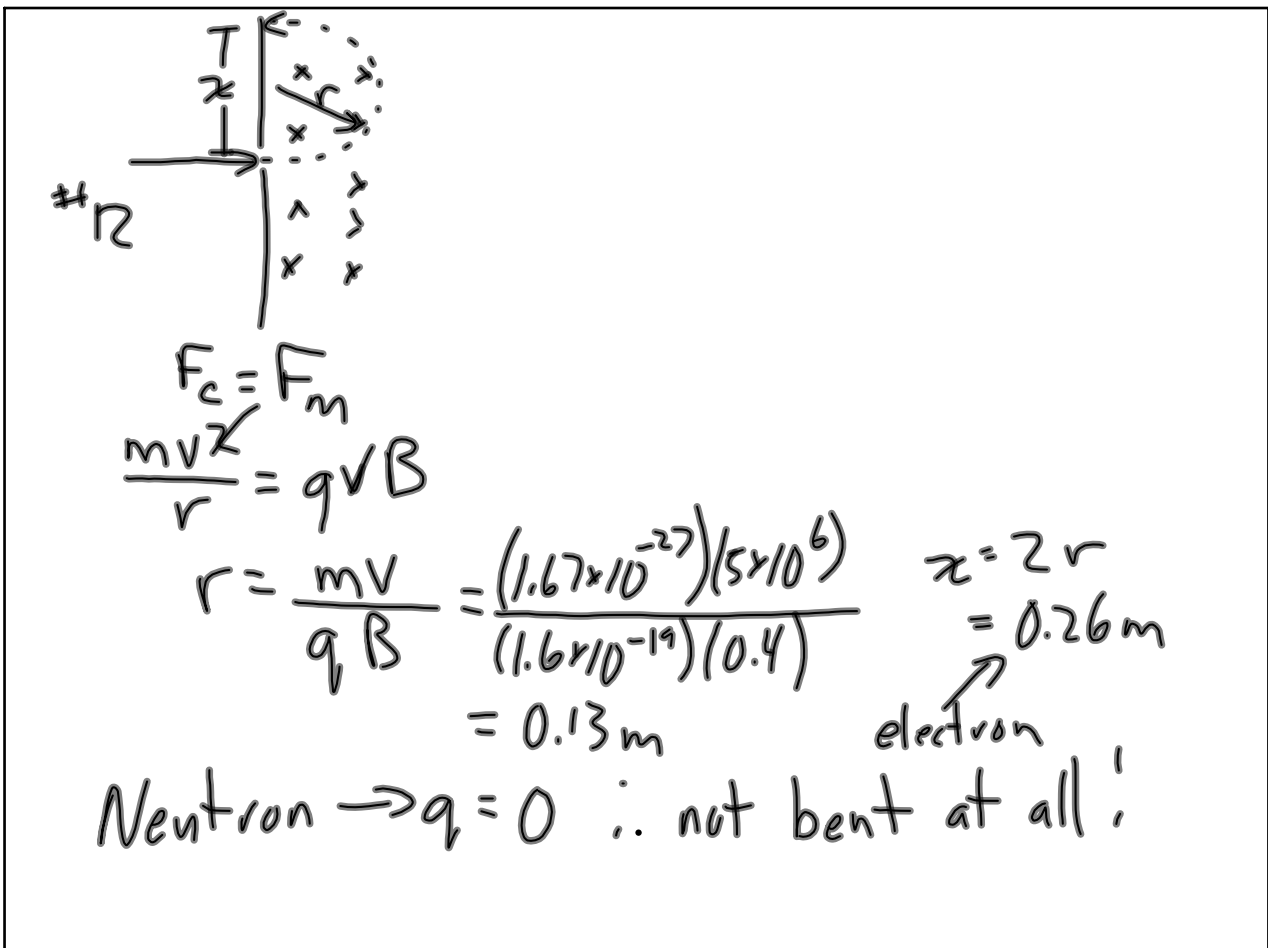 x
r
#12
F_c = F_m
mv²/r = qvB
r = mv/qB = (1.67×10⁻²⁷)(5×10⁶)/(1.6×10⁻¹⁹)(0.4)
x = 2r
= 0.26 m
= 0.13 m
electron
Neutron → q = 0 ∴ not bent at all!